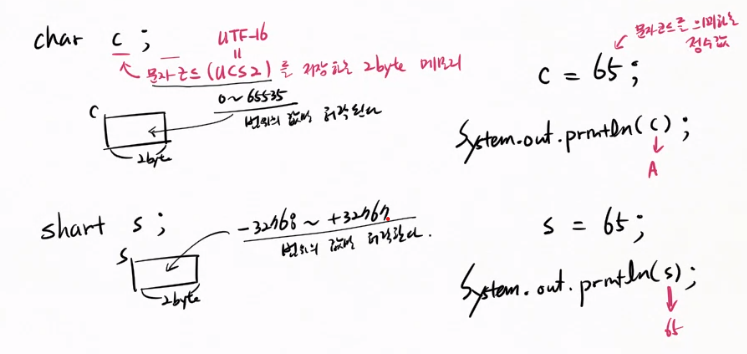 char c ;
UTF-16
=
문자코드(UCS2)를 저장하는 2byte 메모리
c
0~65535
범위의 값만 허락된다
2byte
문자코드를 의미하는
정수값
c = 65 ;
System.out.println(c) ;
A
short s ;
s
-32768 ~ +32767
범위의 값만 허락된다.
2byte
s = 65 ;
System.out.println(s) ;
65